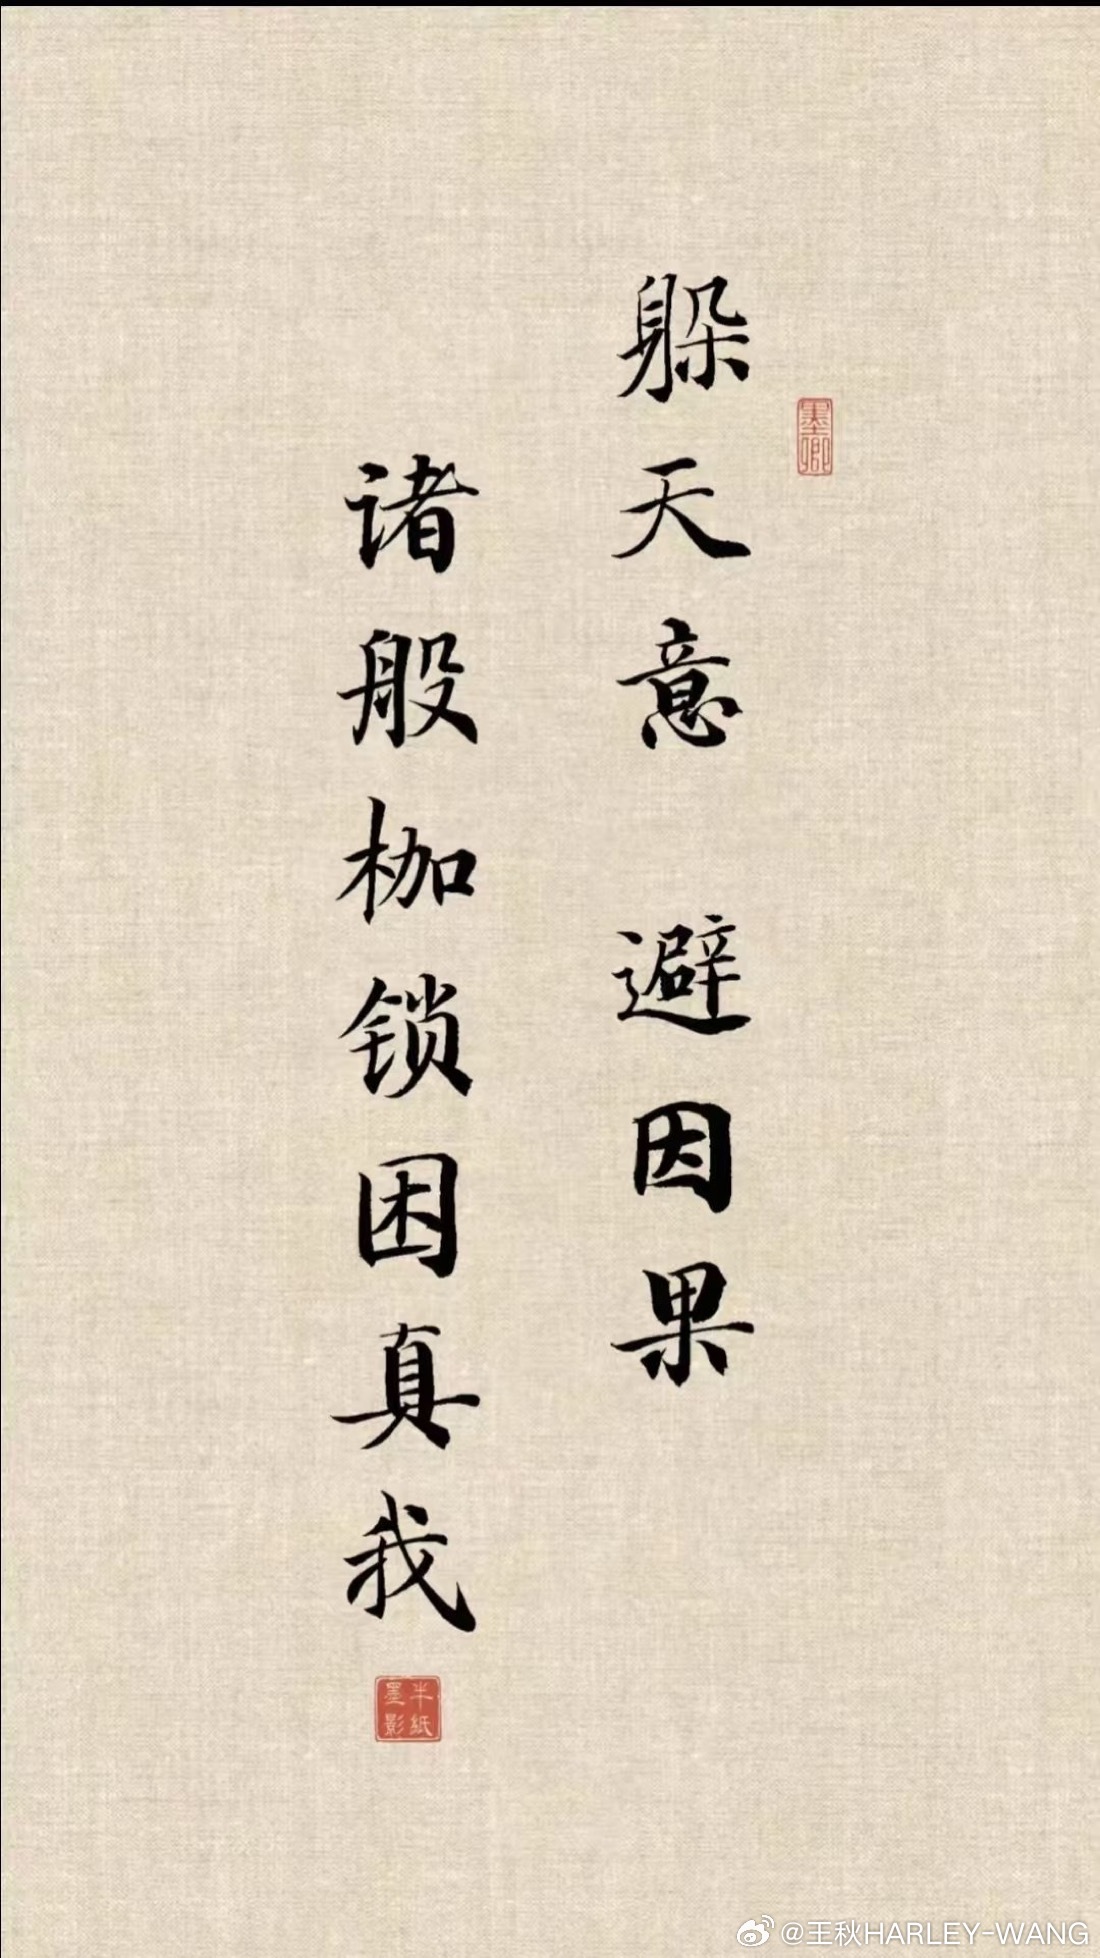 躲天意 避因果
诸般枷锁困真我
墨卿
半纸
墨影
@王秋HARLEY-WANG